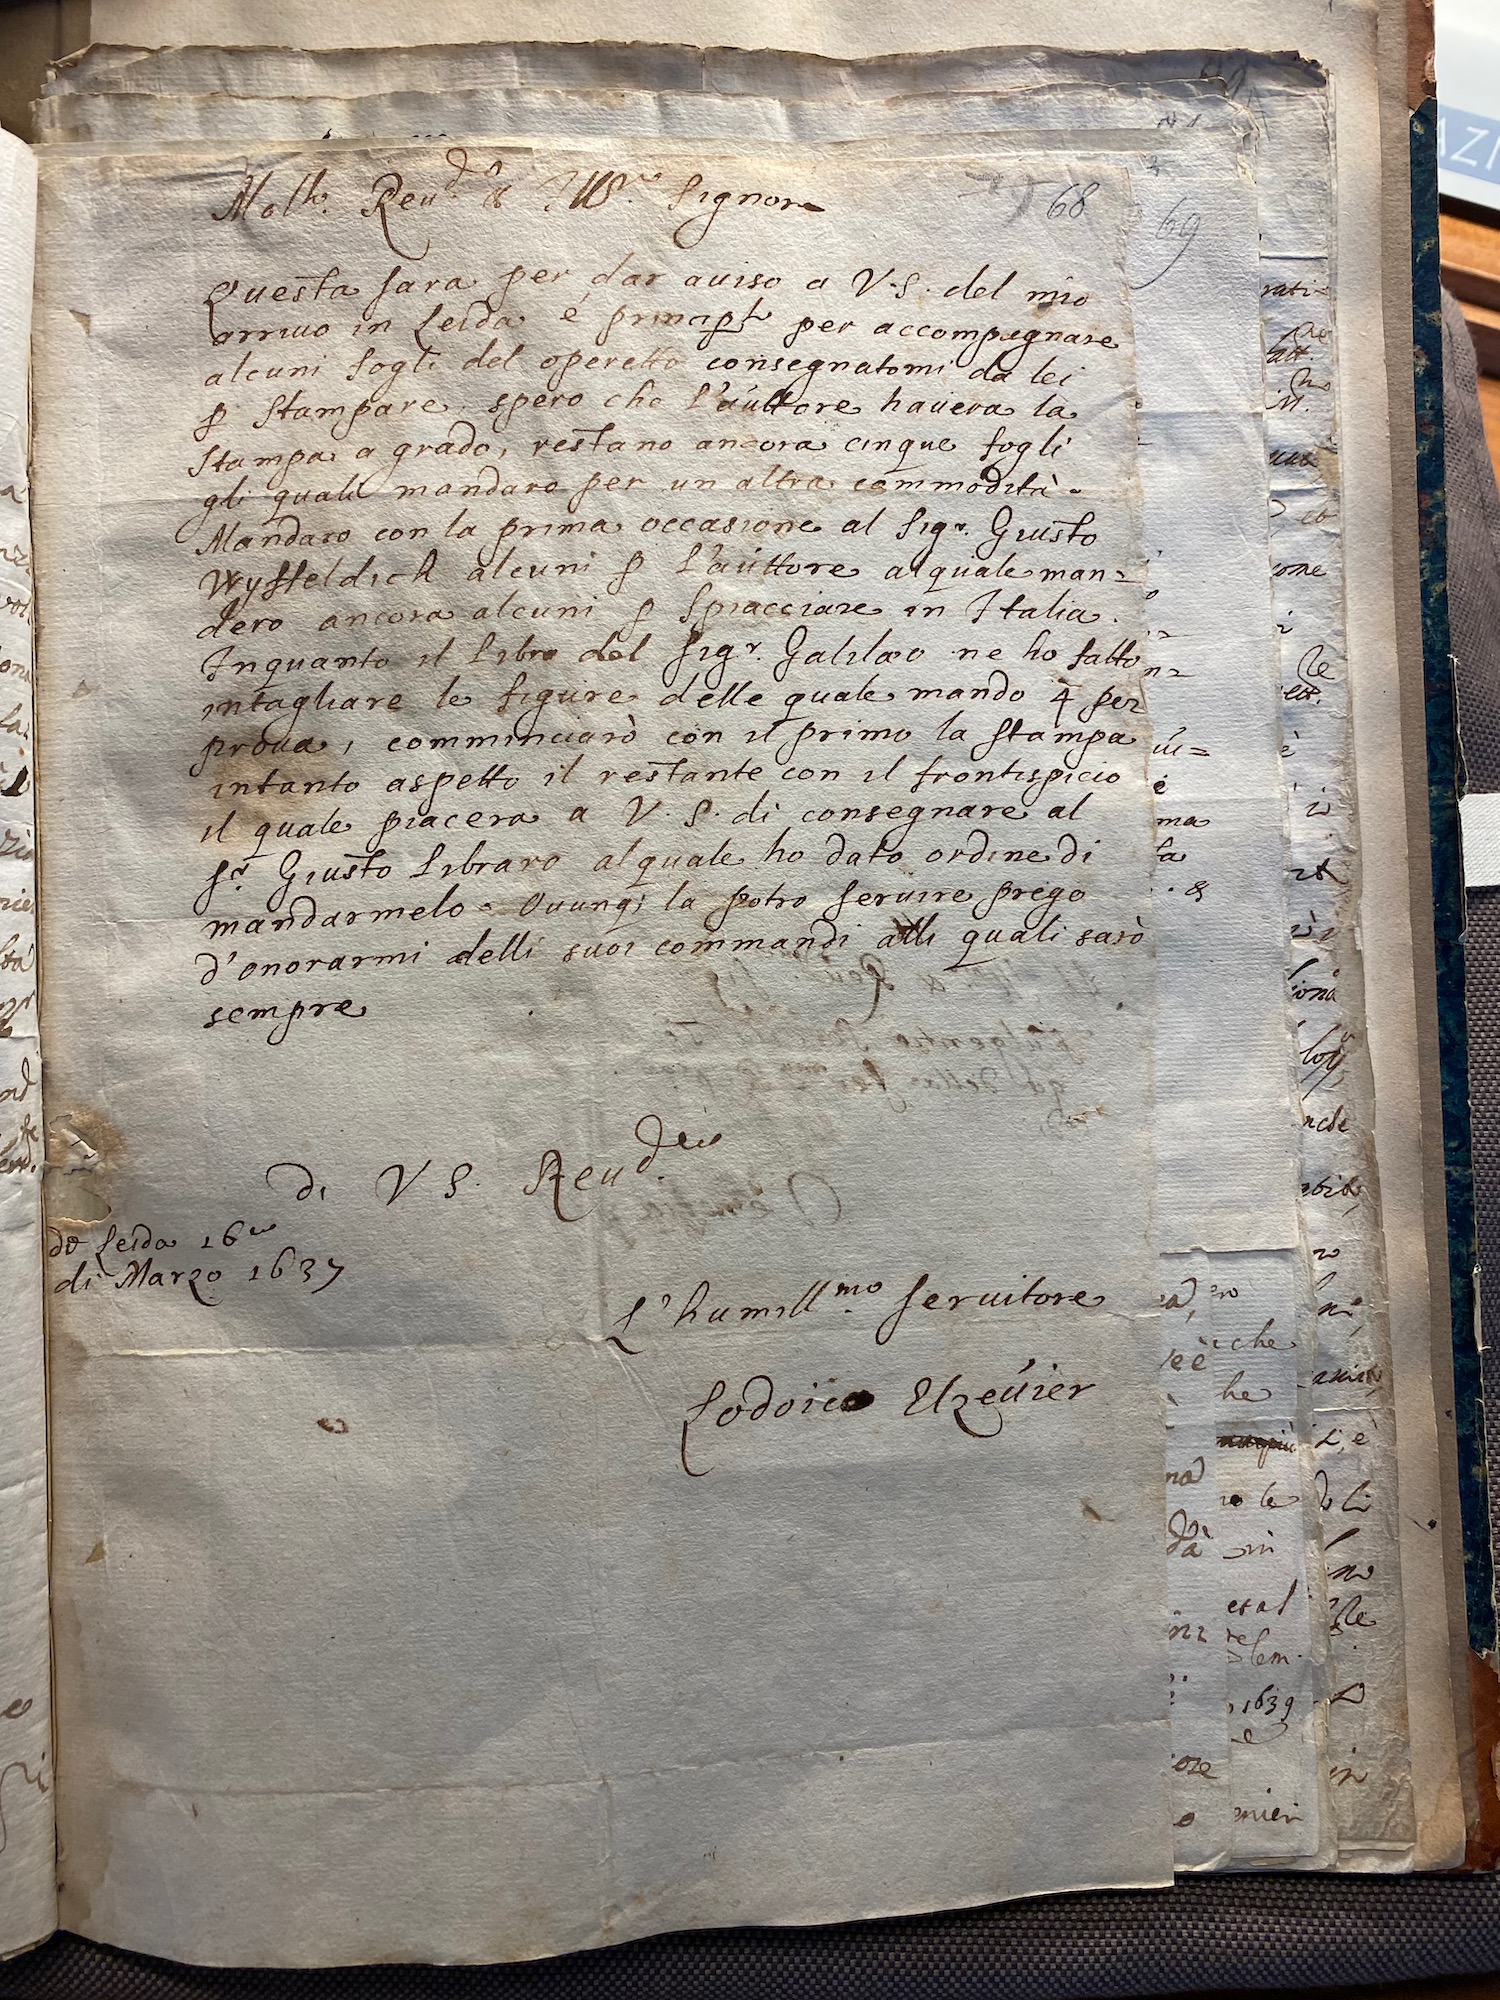 Molto. Reud.o & Illre. Signore
68
69
Questa sara per dar auiso a V.S. del mio
arriuo in Leida é principlt per accompagnare
alcuni fogli del operetto consegnatomi da lei
p stampare. spero che l'auttore hauera la
stampa a grado, restano ancora cinque fogli
gli quali mandaro per un altra commodità.
Mandaro con la prima occasione al Sigr. Giusto
Wyffeldich alcuni p l'auttore al quale man=
dero ancora alcuni p spiacciare in Italia.
Inquanto il Libro del Sigr. Galilæo ne ho fatto
intagliare le figure delle quale mando 4 per
proua, comminciarò con il primo la stampa
intanto aspetto il restante con il frontispicio
il quale piacera a V.S. di consegnare al
Sr. Giusto Libraro al quale ho dato ordine di
mandarmelo. Ouunq; la potro seruire prego
d'onorarmi delli suoi commandi alli quali sarò
sempre
Di V S. Reud.
de Leida 16
di Marzo 1637
L'humillmo. seruitore
Lodoico Elzeuier